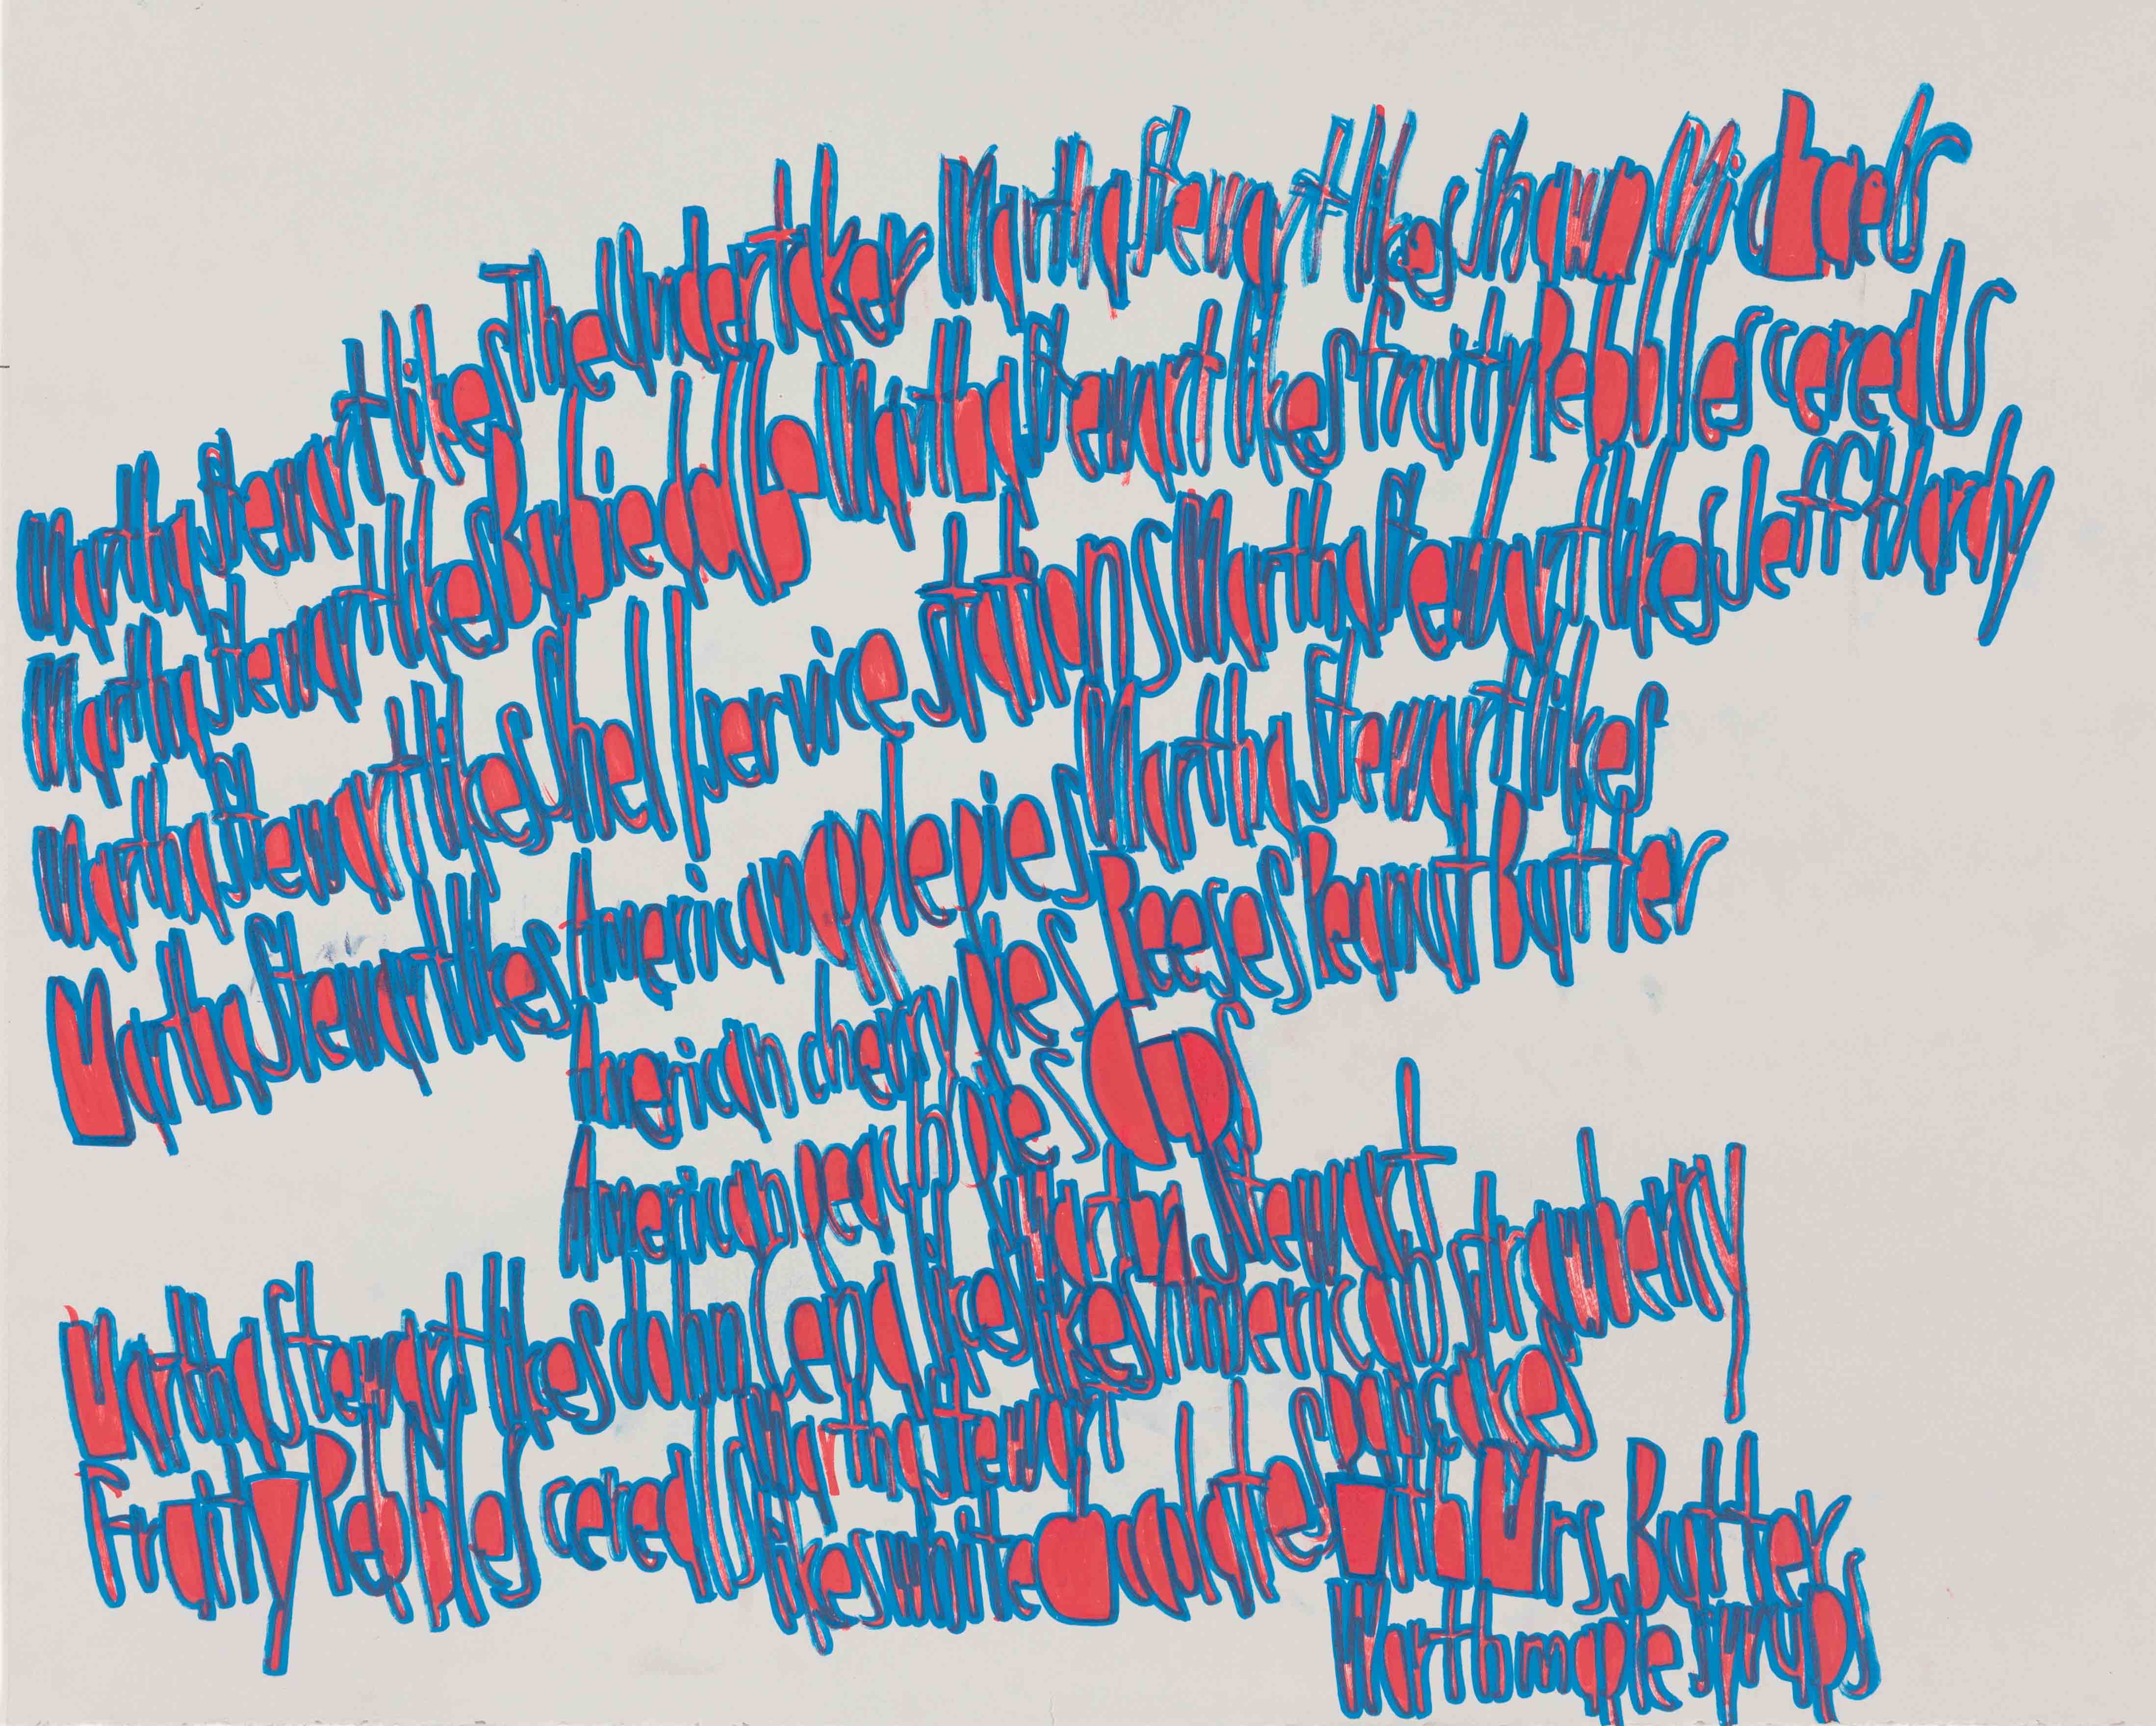 Martha Stewart likes The Undertaker Martha Stewart likes Shawn Michaels
Martha Stewart likes Barbie dolls Martha Stewart likes fruity Pebbles cereals
Martha Stewart likes Shell service stations Martha Stewart likes Jeff Hardy
Martha Stewart likes American apple pies Martha Stewart likes
American cherry pies Reeses Peanut Butter
American peach pies Cups
Martha Stewart likes John Cena likes Martha Stewart
likes American strawberry
Fruity Pebbles cereals Martha Stewart pancakes
likes white chocolates with Mrs. Butter
Worth maple syrups